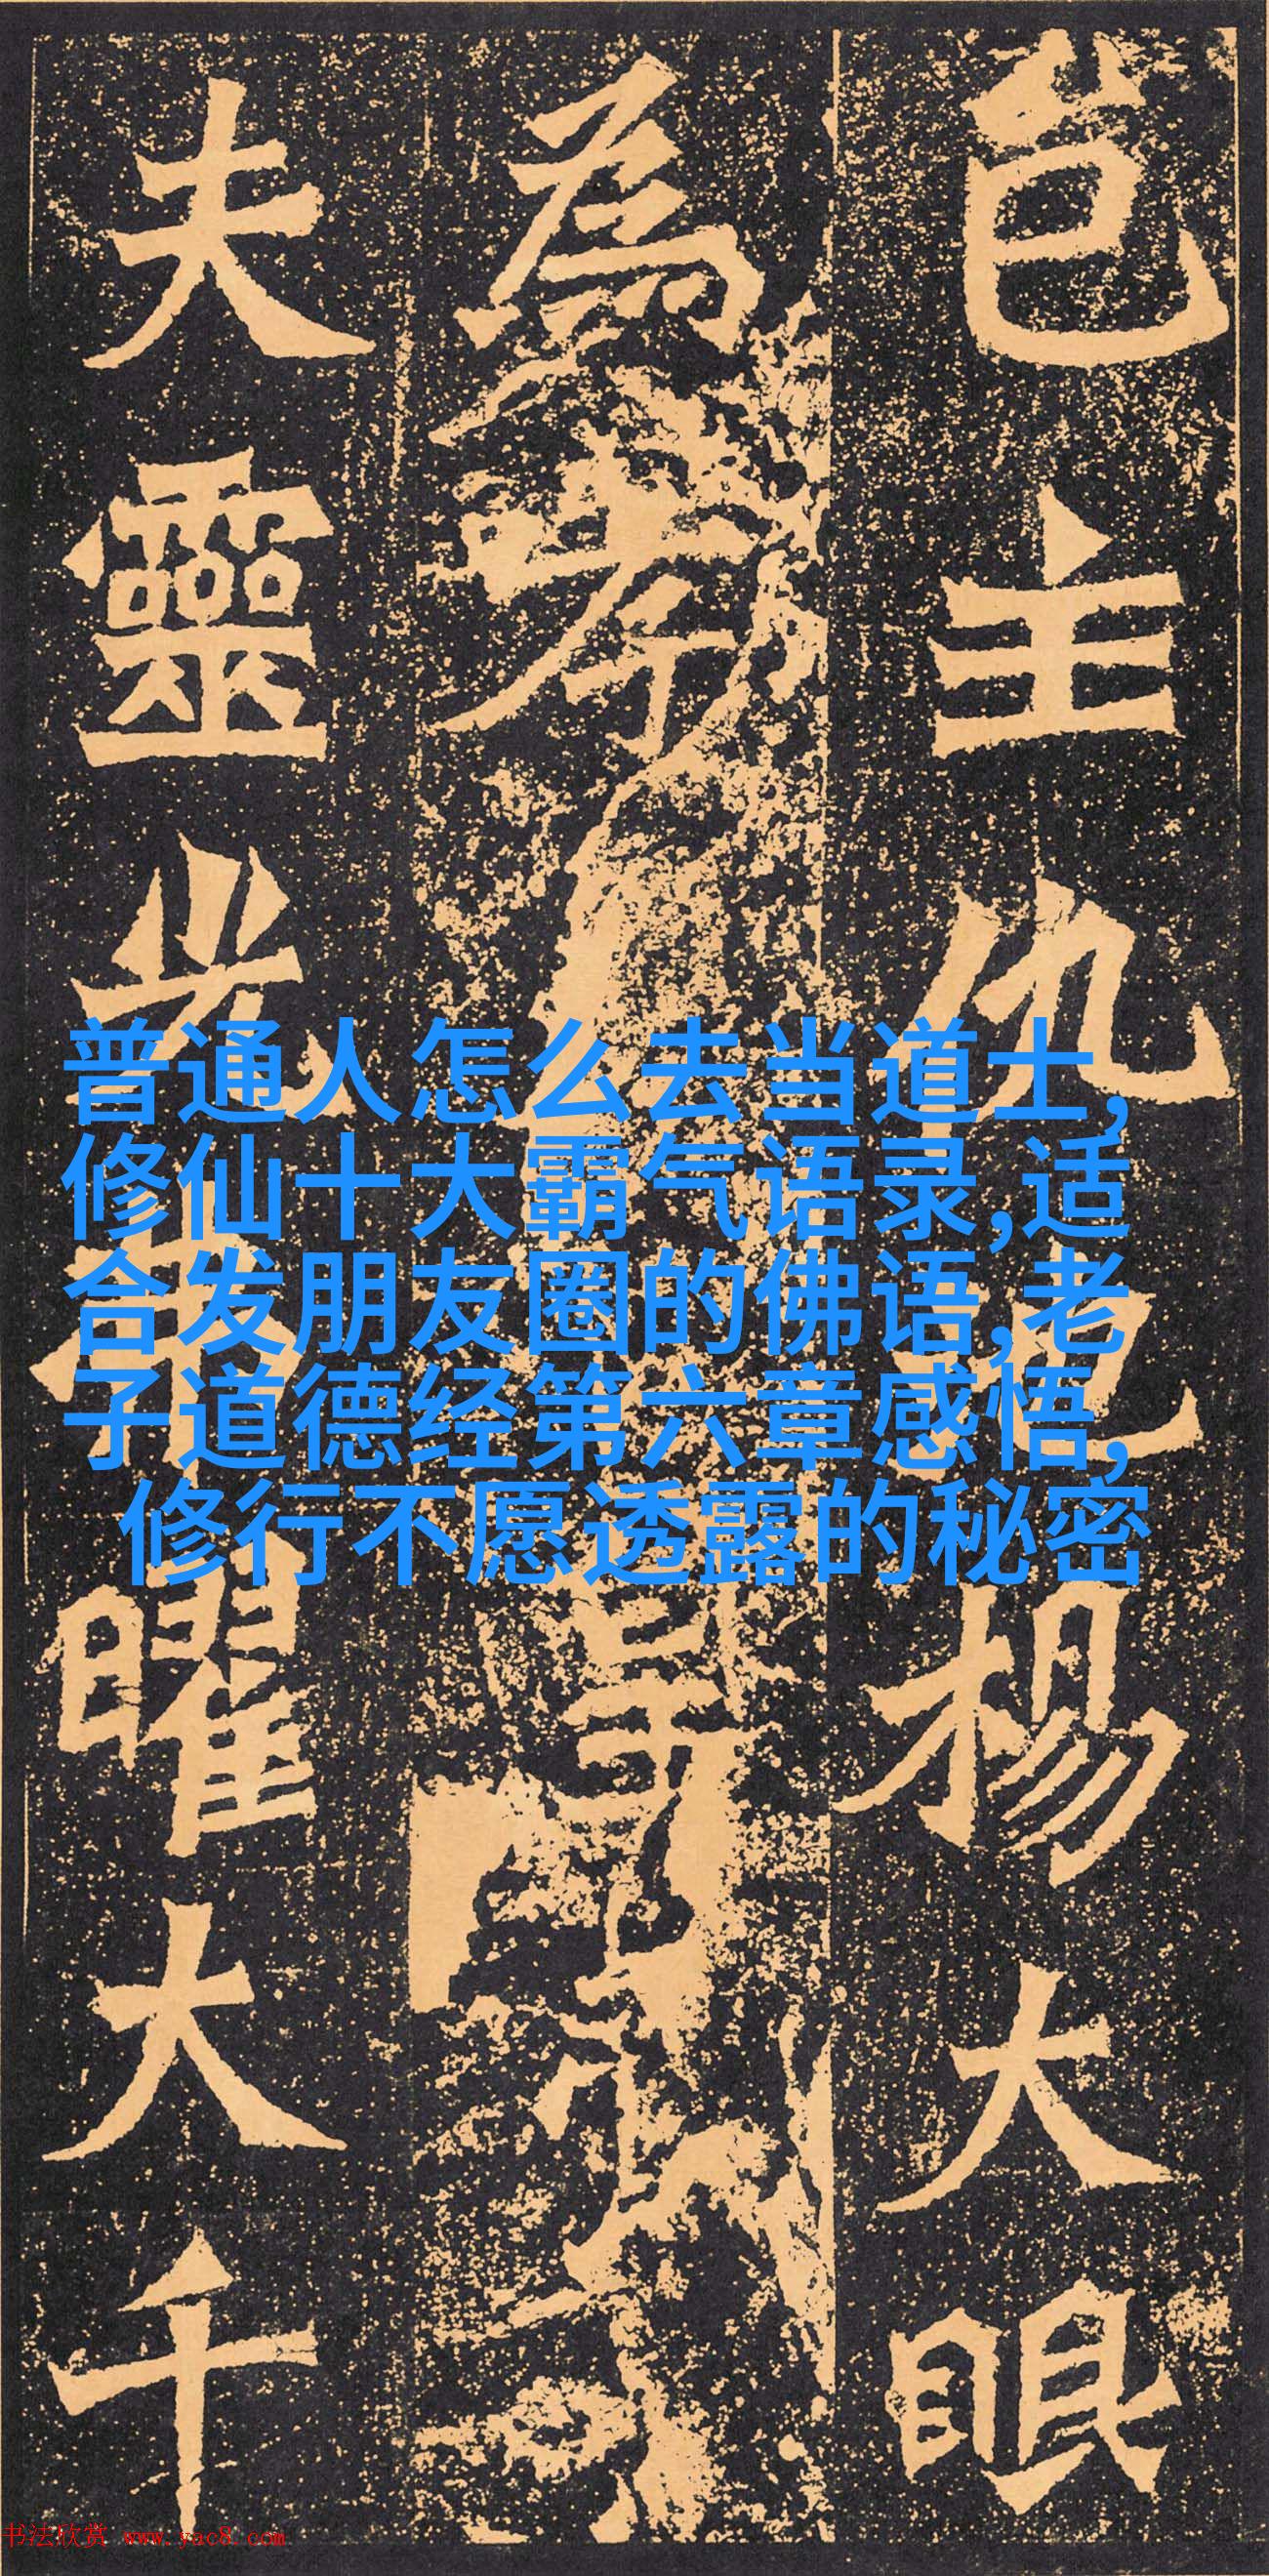 邑主仇池楊大眼
為孝
夫靈光弗曜大千
普通人怎么去当道士,
修仙十大霸气语录,适
合发朋友圈的佛语,老
子道德经第六章感悟,
修行不愿透露的秘密
书法欣赏 www.yac8.com